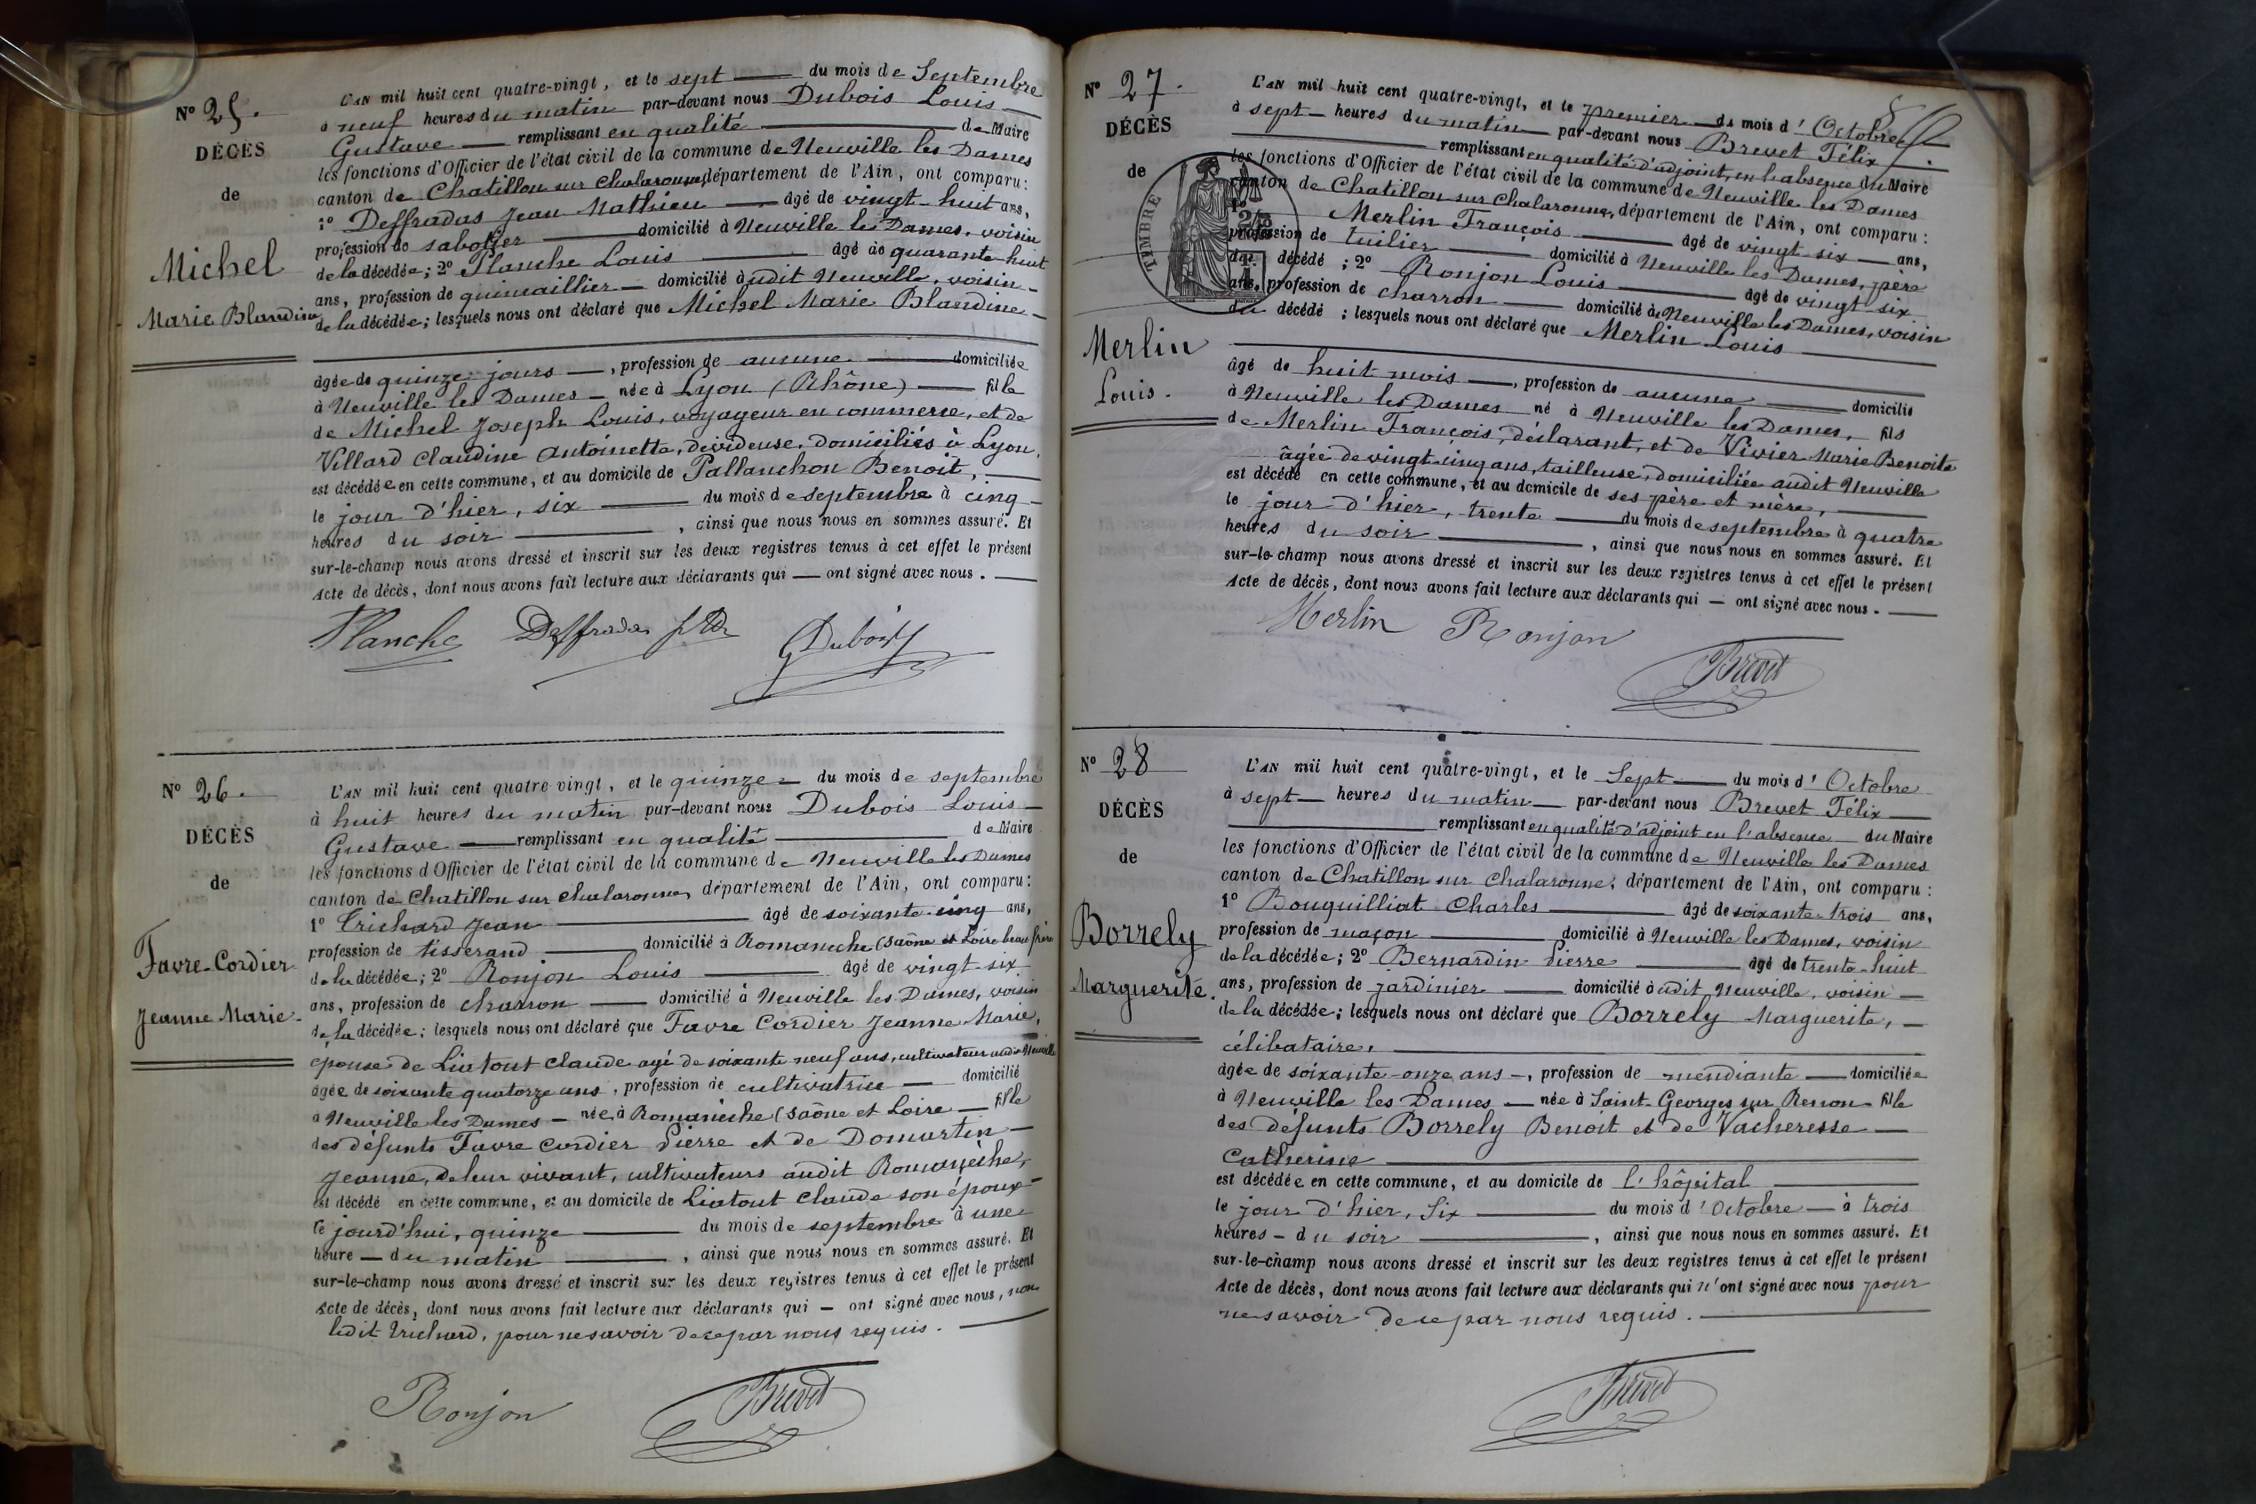 N° 25.
DÉCÈS
de
Michel
Marie Blandine
L'AN mil huit cent quatre-vingt, et le sept du mois de Septembre
à neuf heures du matin par-devant nous Dubois Louis
Gustave remplissant en qualité de Maire
les fonctions d'Officier de l'état civil de la commune de Neuville les Dames
canton de Chatillon sur Chalaronne, département de l'Ain, ont comparu :
1° Deffradas Jean Mathieu âgé de vingt huit ans,
profession de sabotier domicilié à Neuville les Dames, voisin
de la décédée ; 2° Planche Louis âgé de quarante huit
ans, profession de quincaillier domicilié à udit Neuville, voisin
de la décédée ; lesquels nous ont déclaré que Michel Marie Blandine
âgée de quinze jours, profession de aucune domiciliée
à Neuville les Dames née à Lyon (Rhône) fille
de Michel Joseph Louis, voyageur en commerce, et de
Villard Claudine Antoinette, dévideuse, domiciliés à Lyon,
est décédée en cette commune, et au domicile de Pallanchon Benoit,
le jour d'hier, six du mois de septembre à cinq
heures du soir, ainsi que nous nous en sommes assuré. Et
sur-le-champ nous avons dressé et inscrit sur les deux registres tenus à cet effet le présent
Acte de décès, dont nous avons fait lecture aux déclarants qui ont signé avec nous.
Planche Deffradas GDubois
N° 26.
DÉCÈS
de
Favre-Cordier
Jeanne Marie
L'AN mil huit cent quatre-vingt, et le quinze du mois de septembre
à huit heures du matin par-devant nous Dubois Louis
Gustave remplissant en qualité de Maire
les fonctions d'Officier de l'état civil de la commune de Neuville les Dames
canton de Chatillon sur Chalaronne, département de l'Ain, ont comparu :
1° Trichard Jean âgé de soixante-cinq ans,
profession de tisserand domicilié à Romanèche (Saône et Loire beau frère
de la décédée ; 2° Ronjon Louis âgé de vingt-six
ans, profession de charron domicilié à Neuville les Dames, voisin
de la décédée ; lesquels nous ont déclaré que Favre Cordier Jeanne Marie,
épouse de Liatout Claude agé de soixante neuf ans, cultivateur audit Neuville
âgée de soixante quatorze ans, profession de cultivatrice domicilié
à Neuville les Dames née à Romanèche (Saône et Loire fille
des défunts Favre Cordier Pierre et de Domartin
Jeanne, de leur vivant, cultivateurs audit Romanèche,
est décédé en cette commune, et au domicile de Liatout Claude son époux
le jourd'hui, quinze du mois de septembre à une
heure du matin, ainsi que nous nous en sommes assuré. Et
sur-le-champ nous avons dressé et inscrit sur les deux registres tenus à cet effet le présent
Acte de décès, dont nous avons fait lecture aux déclarants qui ont signé avec nous, non
ledit Trichard, pour ne savoir de ce par nous requis.
Ronjon Brevet
N° 27.
DÉCÈS
de
TIMBRE
Merlin
Louis.
L'AN mil huit cent quatre-vingt, et le premier du mois d'Octobre
à sept heures du matin par-devant nous Brevet Félix
remplissant en qualité d'adjoint, en l'absence du Maire
les fonctions d'Officier de l'état civil de la commune de Neuville les Dames
canton de Chatillon sur Chalaronne, département de l'Ain, ont comparu :
Merlin François âgé de vingt six ans,
profession de tuilier domicilié à Neuville les Dames, père
du décédé ; 2° Ronjon Louis âgé de vingt six
ans, profession de charron domicilié à Neuville les Dames, voisin
du décédé ; lesquels nous ont déclaré que Merlin Louis
âgé de huit mois, profession de aucune domicilié
à Neuville les Dames né à Neuville les Dames, fils
de Merlin François, déclarant, et de Vivier Marie Benoite
âgée de vingt-cinq ans, tailleuse, domiciliée audit Neuville
est décédé en cette commune, et au domicile de ses père et mère,
le jour d'hier, trente du mois de septembre à quatre
heures du soir, ainsi que nous nous en sommes assuré. Et
sur-le-champ nous avons dressé et inscrit sur les deux registres tenus à cet effet le présent
Acte de décès, dont nous avons fait lecture aux déclarants qui ont signé avec nous.
Merlin Ronjon
Brevet
N° 28
DÉCÈS
de
Borrely
Marguerite.
L'AN mil huit cent quatre-vingt, et le Sept du mois d'Octobre
à sept heures du matin par-devant nous Brevet Félix
remplissant en qualité d'adjoint en l'absence du Maire
les fonctions d'Officier de l'état civil de la commune de Neuville les Dames
canton de Chatillon sur Chalaronne, département de l'Ain, ont comparu :
1° Bouquilliat Charles âgé de soixante-trois ans,
profession de maçon domicilié à Neuville les Dames, voisin
de la décédée ; 2° Bernardin Pierre âgé de trente-huit
ans, profession de jardinier domicilié à udit Neuville, voisin
de la décédée ; lesquels nous ont déclaré que Borrely Marguerite,
célibataire,
âgée de soixante-onze ans, profession de mendiante domiciliée
à Neuville les Dames née à Saint-Georges sur Renon fille
des défunts Borrely Benoit et de Vacheresse
Catherine
est décédée en cette commune, et au domicile de l'hôpital
le jour d'hier, Six du mois d'Octobre à trois
heures du soir, ainsi que nous nous en sommes assuré. Et
sur-le-champ nous avons dressé et inscrit sur les deux registres tenus à cet effet le présent
Acte de décès, dont nous avons fait lecture aux déclarants qui n'ont signé avec nous pour
ne savoir de ce par nous requis.
Brevet